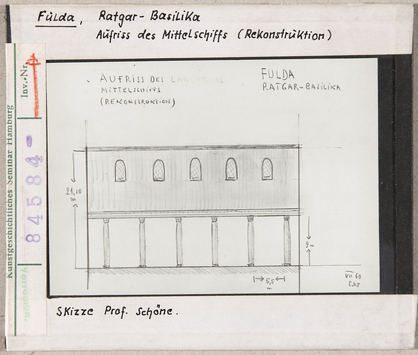 Fulda, Ratgar-Basilika
Aufriss des Mittelschiffs (Rekonstruktion)
Kunstgeschichtliches Seminar Hamburg
Inv.-Nr.
84584
AUFRISS DES
(REKONSTRUKTION)
FULDA
RATGAR-BASILIKA
21,10
Skizze Prof. Schöne.